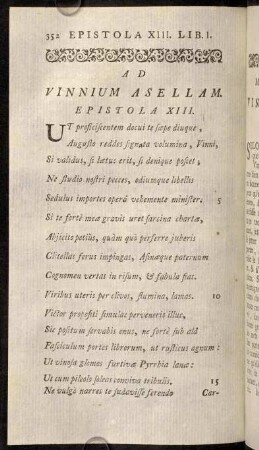 352 EPISTOLA XIII. LIB. I.
AD
VINNIUM ASELLAM.
EPISTOLA XIII.
UT proficiscientem docui te sæpe diuque,
Augusto reddes signata volumina, Vinni,
Si validus, si lætus erit, si denique poscet;
Ne studio nostri pecces, odiumque libellis
Sedulus importes operâ vehemente minister. 5
Si te fortè meæ gravis uret sarcina chartæ,
Abjicito potiùs, quàm quò perferre juberis
Clitellas ferus impingas, Asinæque paternum
Cognomen vertas in risum, & fabula fias.
Viribus uteris per clivos, flumina, lamas. 10
Victor propositi simulac perveneris illuc,
Sic positum servabis onus, ne fortè sub alâ
Fasciculum portes librorum, ut rusticus agnum:
Ut vinosa glomos furtivæ Pyrrhia lanæ:
Ut cum pileolo soleas conviva tribulis. 15
Ne vulgò narres te sudavisse ferendo
Car-